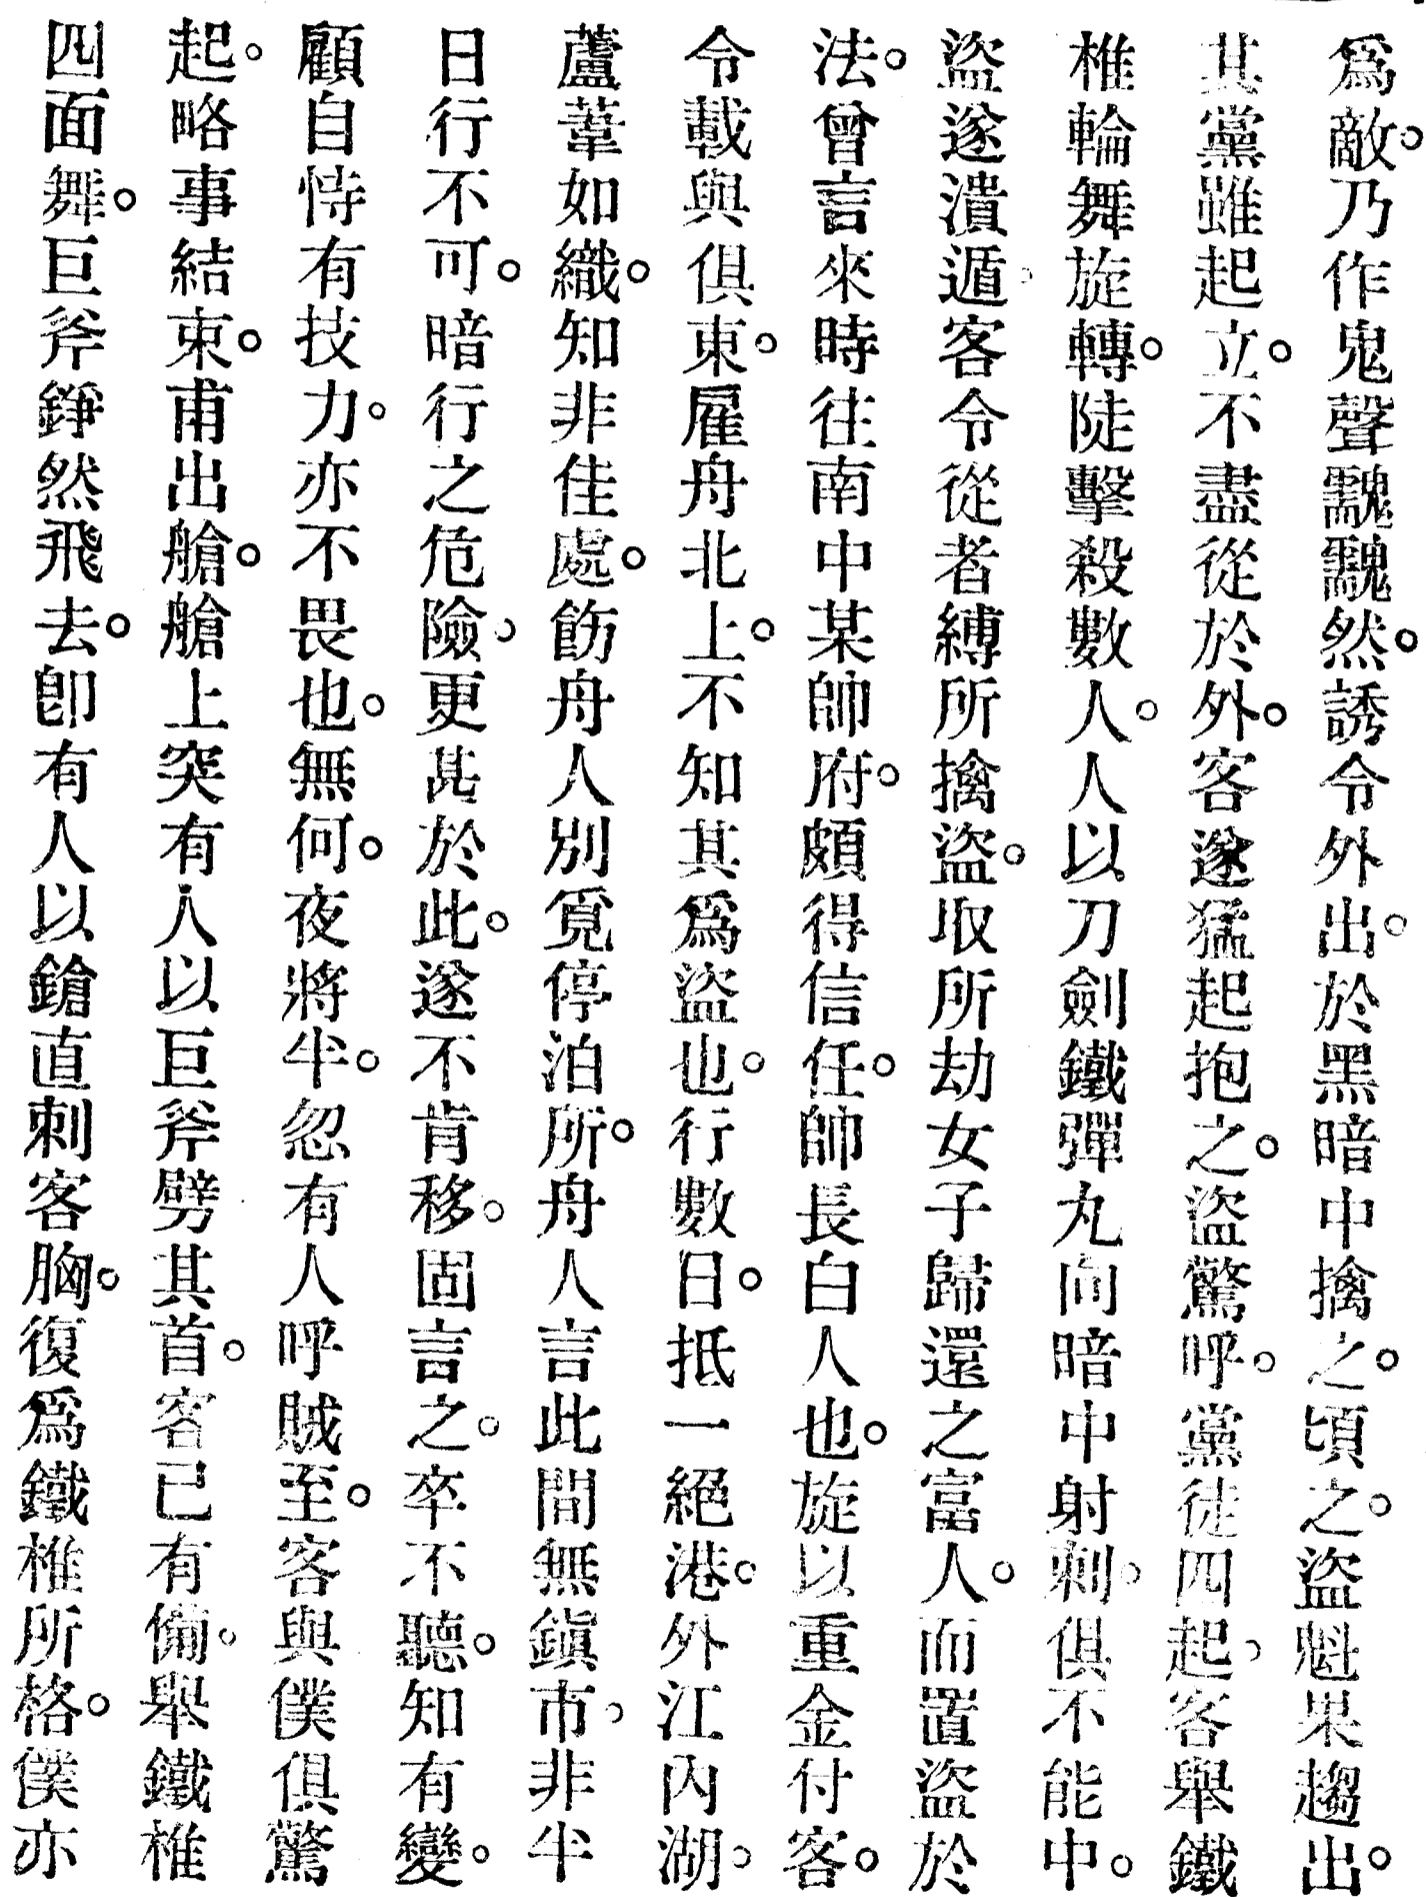 爲敵。乃作鬼聲䨲䨲然。誘令外出。於黑暗中擒之。頃之。盜魁果趨出。
其黨雖起立。不盡從於外。客遂猛起抱之。盜驚呼。黨徒四起。客舉鐵
椎輪舞旋轉。陡擊殺數人。人以刀劍鐵彈丸向暗中射刺。俱不能中。
盜遂潰遁。客令從者縛所擒盜。取所劫女子歸還之富人。而置盜於
法。曾言來時往南中某帥府。頗得信任。帥長白人也。旋以重金付客。
令載與俱東。雇舟北上。不知其爲盜也。行數日。抵一絕港。外江內湖。
蘆葦如織。知非佳處。飭舟人別覓停泊所。舟人言此間無鎭市。非半
日行不可。暗行之危險。更甚於此。遂不肯移。固言之。卒不聽。知有變。
顧自恃有技力。亦不畏也。無何。夜將半。忽有人呼賊至。客與僕俱驚
起。略事結束。甫出艙。艙上突有人以巨斧劈其首。客已有備。舉鐵椎
四面舞。巨斧錚然飛去。卽有人以鎗直刺客胸。復爲鐵椎所格。僕亦